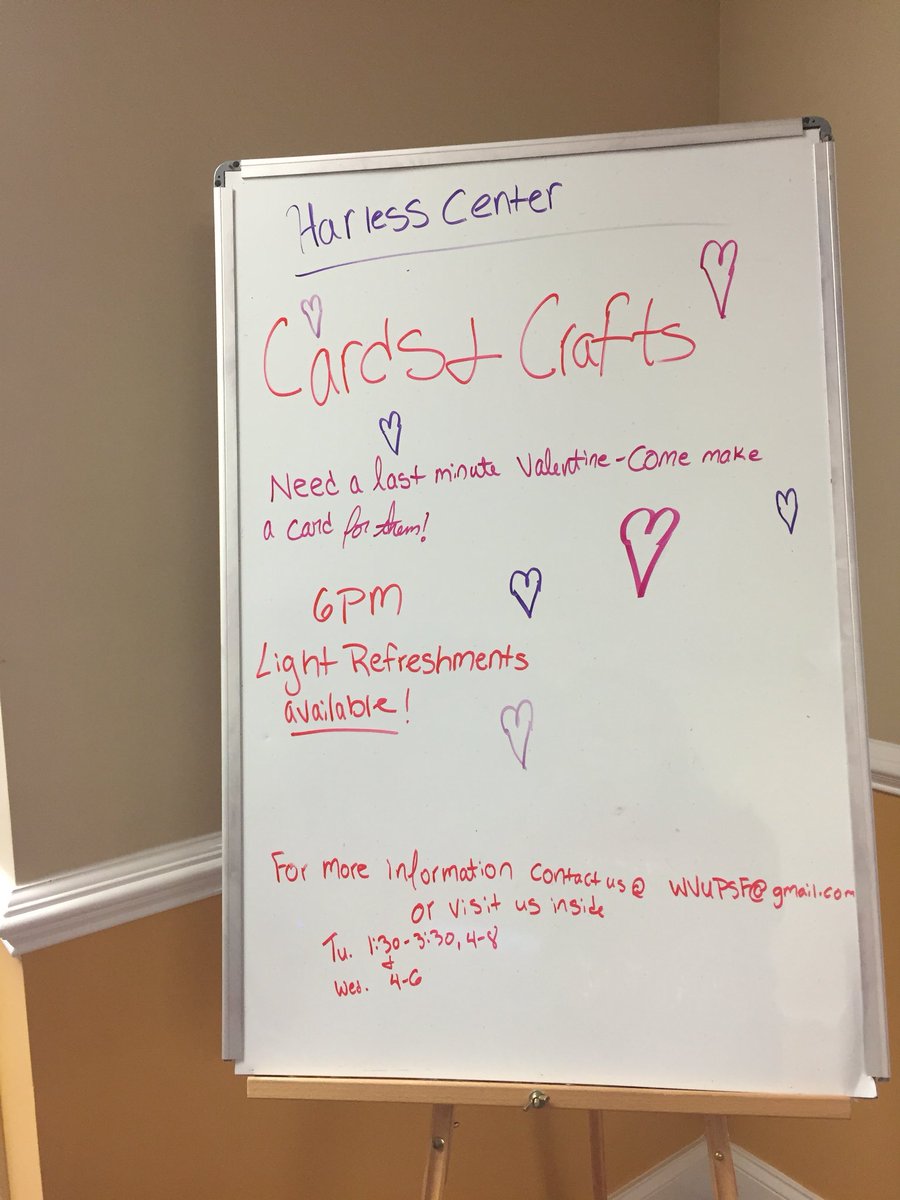 Harless Center
Cards & Crafts
Need a last minute Valentine - Come make
a card for them!
6PM
Light Refreshments
available!
For more information contact us @ WVUPSF@gmail.com
or visit us inside
Tu. 1:30-3:30, 4-8
&
Wed. 4-6